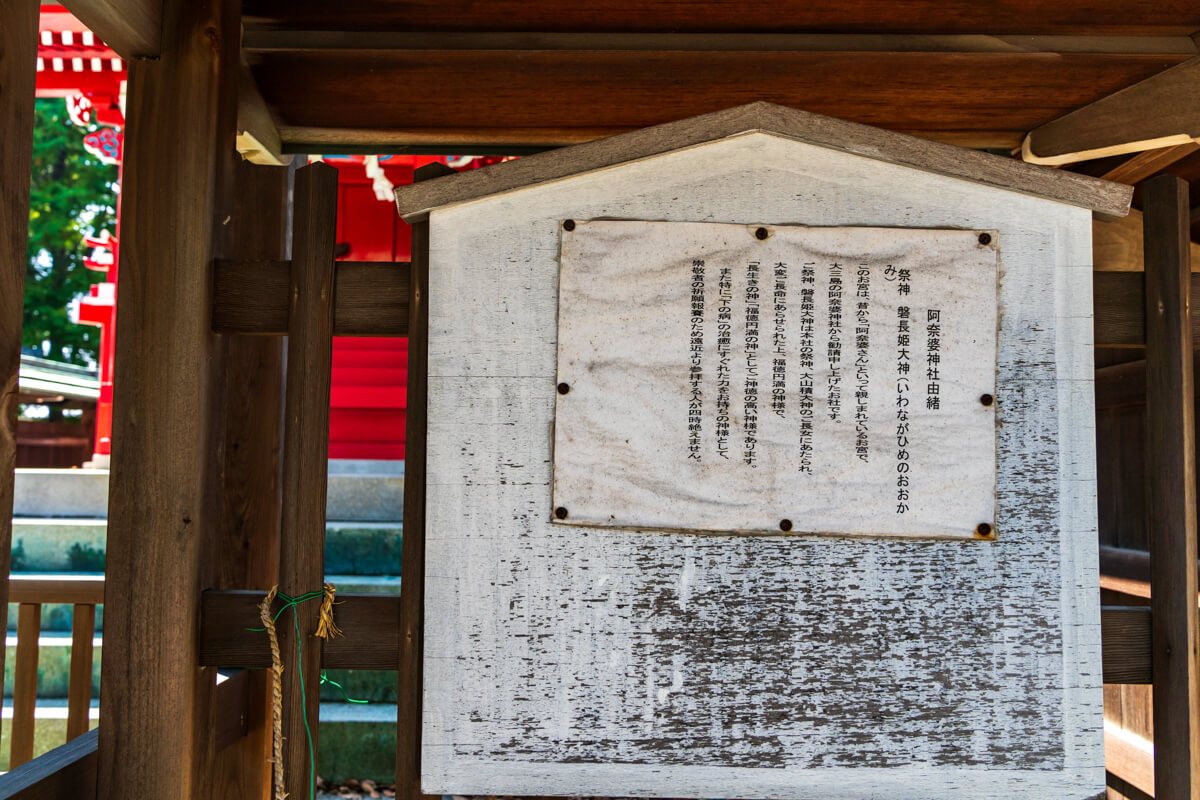 阿奈婆神社由緒
祭神　磐長姫大神（いわながひめのおおか
み）
このお宮は、昔から「阿奈婆さん」といって親しまれているお宮で、
大三島の阿奈婆神社から勧請申し上げたお社です。
ご祭神　磐長姫大神は本社の祭神、大山積大神のご長女にあたられ、
大変ご長命にあらせられた上、福徳円満の神様で、
「長生きの神」「福徳円満の神」としてご神徳の高い神様であります。
また特に「下の病」の治癒にすぐれた力をお持ちの神様として、
崇敬者の祈願報賽のため遠近より参拝する人が四時絶えません。